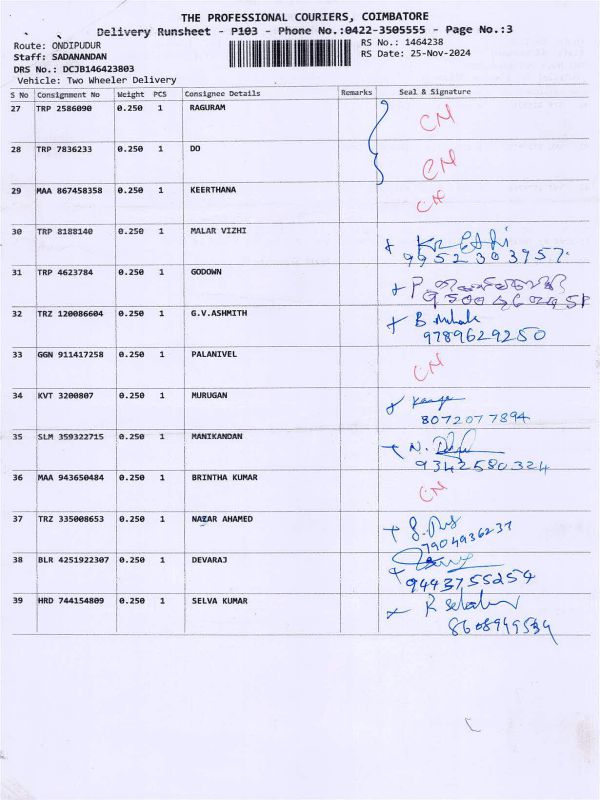 THE PROFESSIONAL COURIERS, COIMBATORE
Delivery Runsheet - P103 - Phone No.:0422-3505555 - Page No.:3
Route: ONDIPUDUR
RS No.: 1464238
Staff: SADANANDAN
RS Date: 25-Nov-2024
DRS No.: DCJB146423803
Vehicle: Two Wheeler Delivery
S No Consignment No Weight PCS Consignee Details Remarks Seal & Signature
27 TRP 2586090 0.250 1 RAGURAM CN
28 TRP 7836233 0.250 1 DO CN
29 MAA 867458358 0.250 1 KEERTHANA CN
30 TRP 8188140 0.250 1 MALAR VIZHI
9952303957
31 TRP 4623784 0.250 1 GODOWN
32 TRZ 120086604 0.250 1 G.V.ASHMITH B
9789629250
33 GGN 911417258 0.250 1 PALANIVEL CN
34 KVT 3200807 0.250 1 MURUGAN
8072077894
35 SLM 359322715 0.250 1 MANIKANDAN N.
9342580324
36 MAA 943650484 0.250 1 BRINTHA KUMAR CN
37 TRZ 335008653 0.250 1 NAZAR AHAMED
7904936237
38 BLR 4251922307 0.250 1 DEVARAJ
9443755254
39 HRD 744154809 0.250 1 SELVA KUMAR